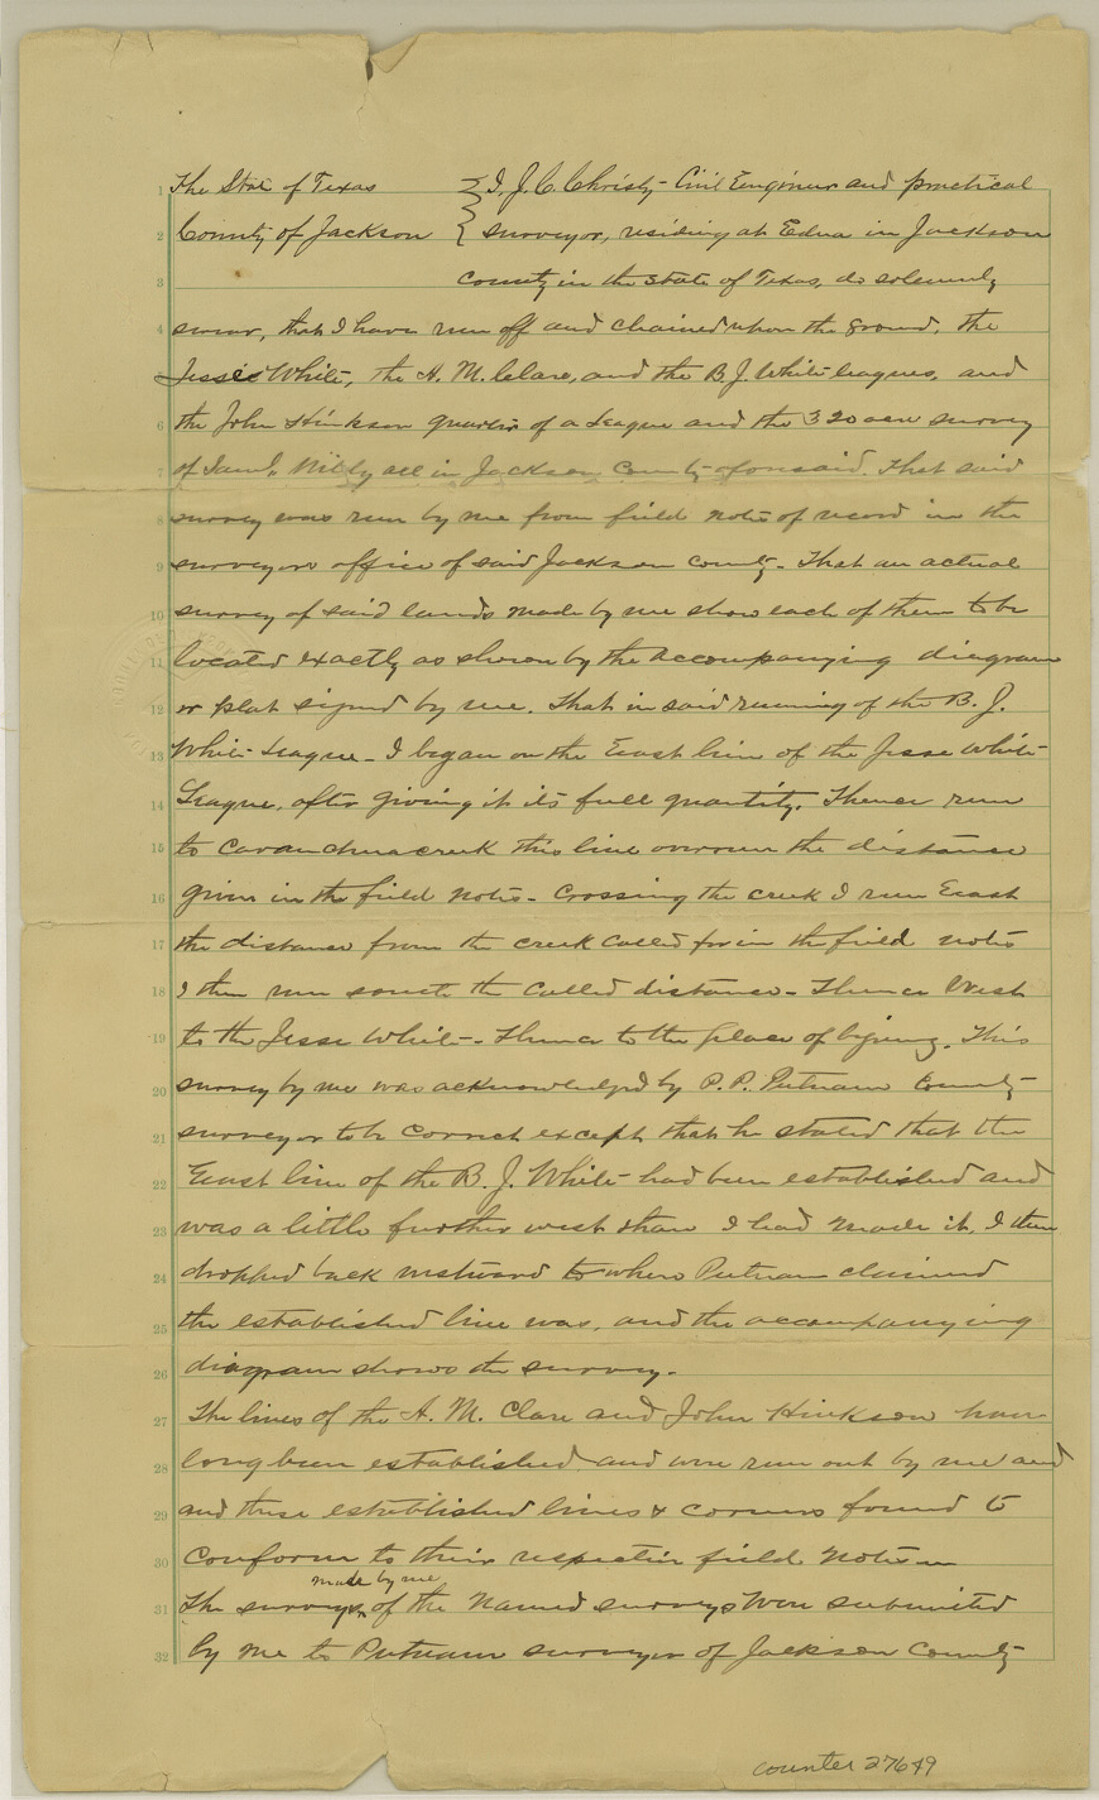 1 The State of Texas } I, J. C. Christy - Civil Engineer and practical
2 County of Jackson } surveyor, residing at Edna in Jackson
3 county in the State of Texas, do solemnly
4 swear, that I have run off and chained upon the ground, the
Jesse White, the A. M. Clare, and the B. J. White leagues, and
6 the John Hinkson quarter of a League and the 320 acre survey
7 of Saml. all in Jackson County aforesaid. That said
8 survey was run by me from field notes of record in the
9 surveyors office of said Jackson County - That an actual
10 survey of said lands made by me show each of them to be
11 located exactly as shown by the accompanying diagram
12 or plat signed by me. That in said running of the B. J.
13 White League - I began on the East line of the Jesse White
14 League, after giving it its full quantity. Thence run
15 to creek this line overrun the distance
16 given in the field notes - Crossing the creek I run East
17 the distance from the creek called for in the field notes
18 I then run south the called distance - Thence West
19 to the Jesse White - Thence to the place of begining. This
20 survey by me was acknowledged by P. P. Putnam County
21 surveyor to be correct except that he stated that the
22 East line of the B. J. White had been established and
23 was a little further west than I had made it, I then
24 dropped back westward to where Putnam claimed
25 the established line was, and the accompanying
26 diagram shows the survey.
27 The lines of the A. M. Clare and John Hinkson have
28 long been established and were run out by me and
29 and these established lines & corners found to
30 conform to their respective field notes
made by me
31 The surveys of the named surveys were submitted
32 by me to Putnam surveyor of Jackson County
counter 27649